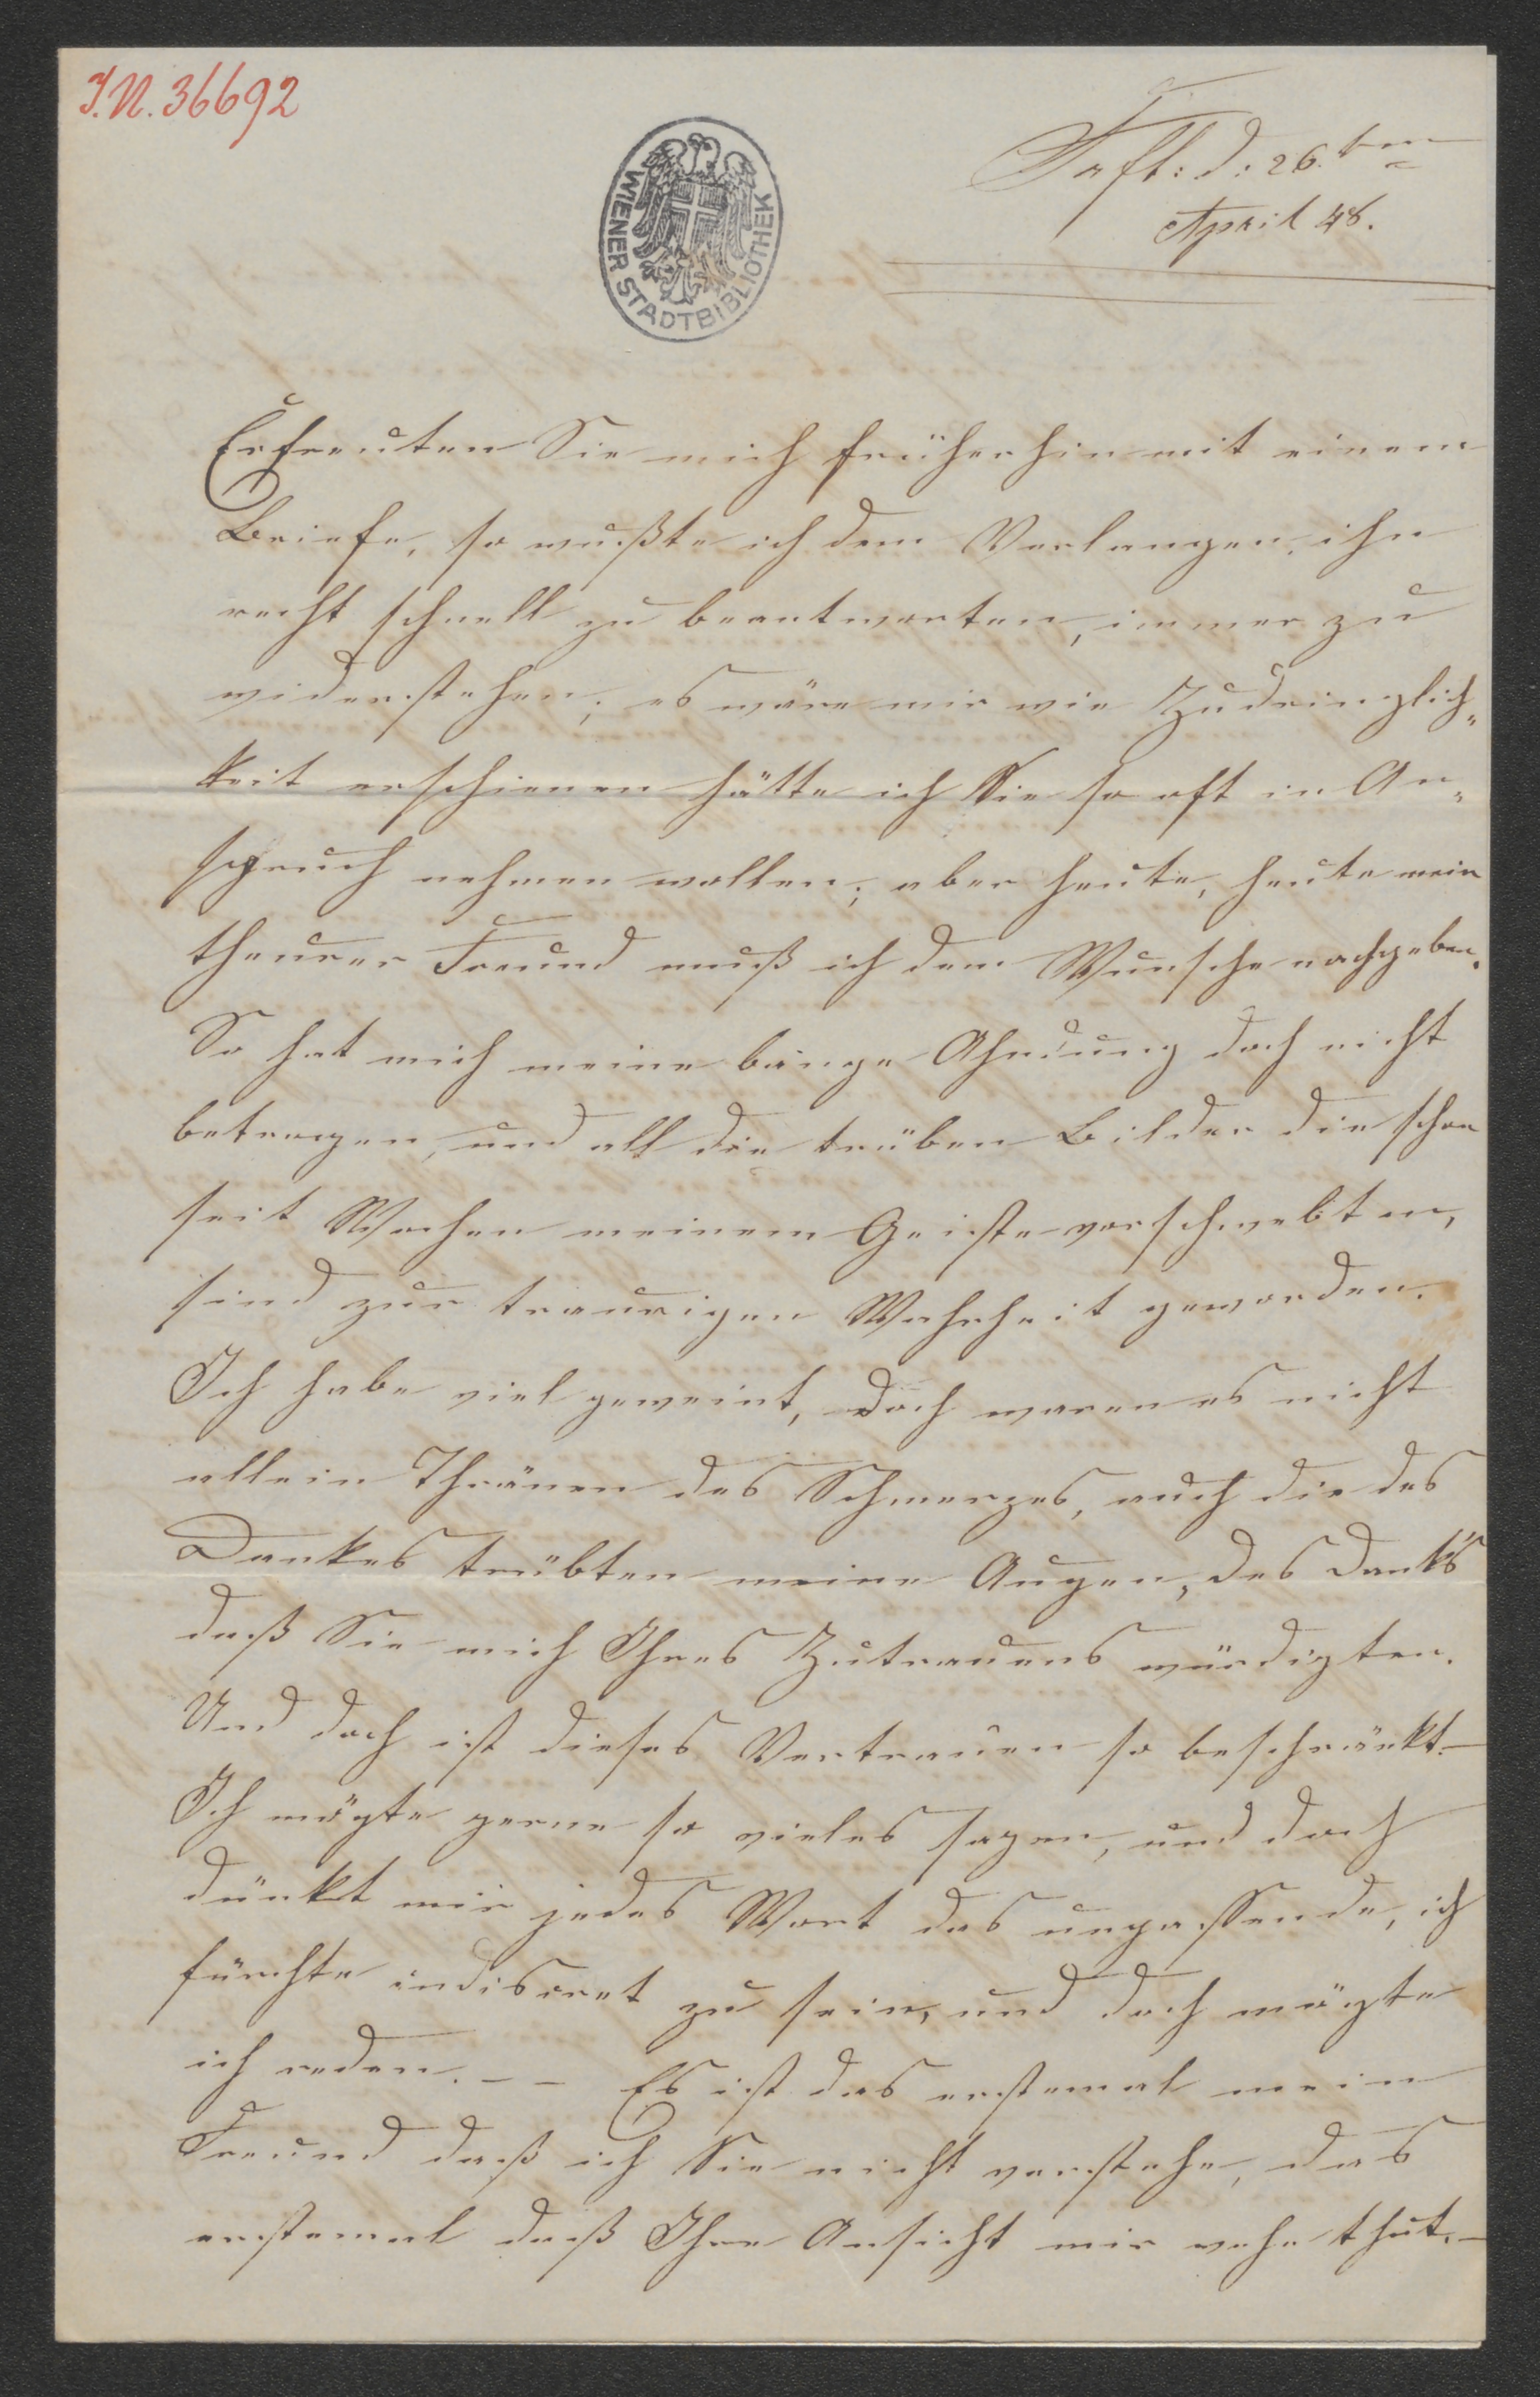 I.N. 36692
WIENER STADTBIBLIOTHEK
Frft: d: 26.ten
April 48.
Erfreuten Sie mich früherhin mit einem
Briefe, so wußte ich dem Verlangen, ihn
recht schnell zu beantworten, immer zu
widerstehen; es wäre mir wie Zudringlich„
keit erschienen hätte ich Sie so oft in An„
spruch nehmen wollen; aber heute, heute mein
theurer Freund muß ich dem Wunsche nachgeben.
So hat mich meine bange Ahndung doch nicht
betrogen, und all die trüben Bilder die schon
seit Wochen meinem Geiste vorschwebten,
sind zur traurigen Wahrheit geworden.
Ich habe viel geweint, doch waren es nicht
allein Thränen des Schmerzes, auch die des
Dankes trübten meine Augen, des Dank's
daß Sie mich Ihres Zutrauens würdigten.
Und doch ist dieses Vertrauen so beschränkt.—
Ich mögte gerne so vieles sagen, und doch
dünkt mir jedes Wort das unpassende, ich
fürchte indiscret zu sein, und doch mögte
ich reden. — — Es ist das erstemal mein
Freund daß ich Sie nicht verstehe, das
erstemal daß Ihre Ansicht mir wehe thut.—